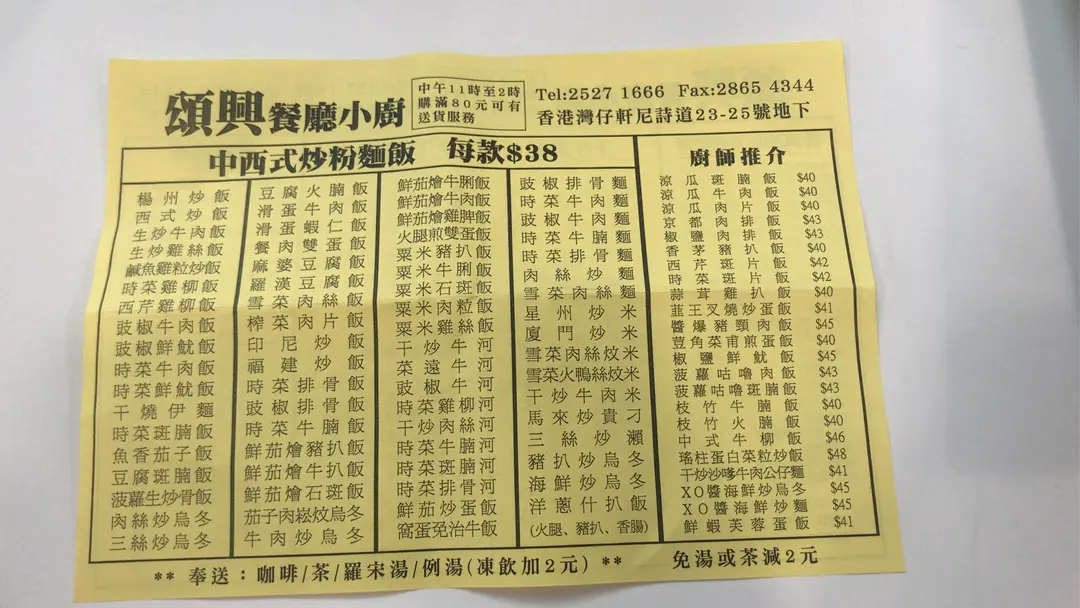 頌興餐廳小廚
中午11時至2時
購滿80元可有
送貨服務
Tel:2527 1666 Fax:2865 4344
香港灣仔軒尼詩道23-25號地下
中西式炒粉麵飯 每款$38
楊州炒飯
西式炒飯
生炒牛肉飯
生炒雞絲飯
鹹魚雞粒炒飯
時菜雞柳飯
西芹雞柳飯
豉椒牛肉飯
豉椒鮮魷飯
時菜牛肉飯
時菜鮮魷飯
干燒伊麵
時菜斑腩飯
魚香茄子飯
豆腐斑腩飯
菠蘿生炒骨飯
肉絲炒烏冬
三絲炒烏冬
豆腐火腩飯
滑蛋牛肉飯
滑蛋蝦仁飯
餐肉雙蛋飯
麻婆豆腐飯
羅漢豆腐飯
雪菜肉絲飯
榨菜肉片飯
印尼炒飯
福建炒飯
時菜排骨飯
豉椒排骨飯
時菜牛腩飯
鮮茄燴豬扒飯
鮮茄燴牛扒飯
鮮茄燴石斑飯
茄子肉崧炆烏冬
牛肉炒烏冬
鮮茄燴牛脷飯
鮮茄燴牛肉飯
鮮茄燴雞脾飯
火腿煎雙蛋飯
粟米豬扒飯
粟米牛脷飯
粟米石斑飯
粟米肉粒飯
粟米雞絲飯
干炒牛河
菜遠牛河
豉椒牛河
時菜雞柳河
干炒肉絲河
時菜牛腩河
時菜斑腩河
時菜排骨河
鮮茄炒蛋飯
窩蛋免治牛飯
豉椒排骨麵
時菜牛肉麵
豉椒牛肉麵
時菜牛腩麵
時菜排骨麵
肉絲炒麵
雪菜肉絲麵
星州炒米
廈門炒米
雪菜肉絲炆米
雪菜火鴨絲炆米
干炒牛肉米
馬來炒貴刁
三絲炒瀨
豬扒炒烏冬
海鮮炒烏冬
洋蔥什扒飯
(火腿、豬扒、香腸)
廚師推介
涼瓜斑腩飯 $40
涼瓜牛肉飯 $40
涼瓜肉片飯 $40
京都肉排飯 $43
椒鹽肉排飯 $43
香茅豬扒飯 $40
西芹斑片飯 $42
時菜斑片飯 $42
蒜茸雞扒飯 $40
韮王叉燒炒蛋飯 $41
醬爆豬頸肉飯 $45
荳角菜甫煎蛋飯 $40
椒鹽鮮魷飯 $45
菠蘿咕嚕肉飯 $43
菠蘿咕嚕斑腩飯 $43
枝竹牛腩飯 $40
枝竹火腩飯 $40
中式牛柳飯 $46
瑤柱蛋白菜粒炒飯 $48
干炒沙嗲牛肉公仔麵 $41
XO醬海鮮炒烏冬 $45
XO醬海鮮炒麵 $45
鮮蝦芙蓉蛋飯 $41
** 奉送：咖啡/茶/羅宋湯/例湯(凍飲加2元) ** 免湯或茶減2元